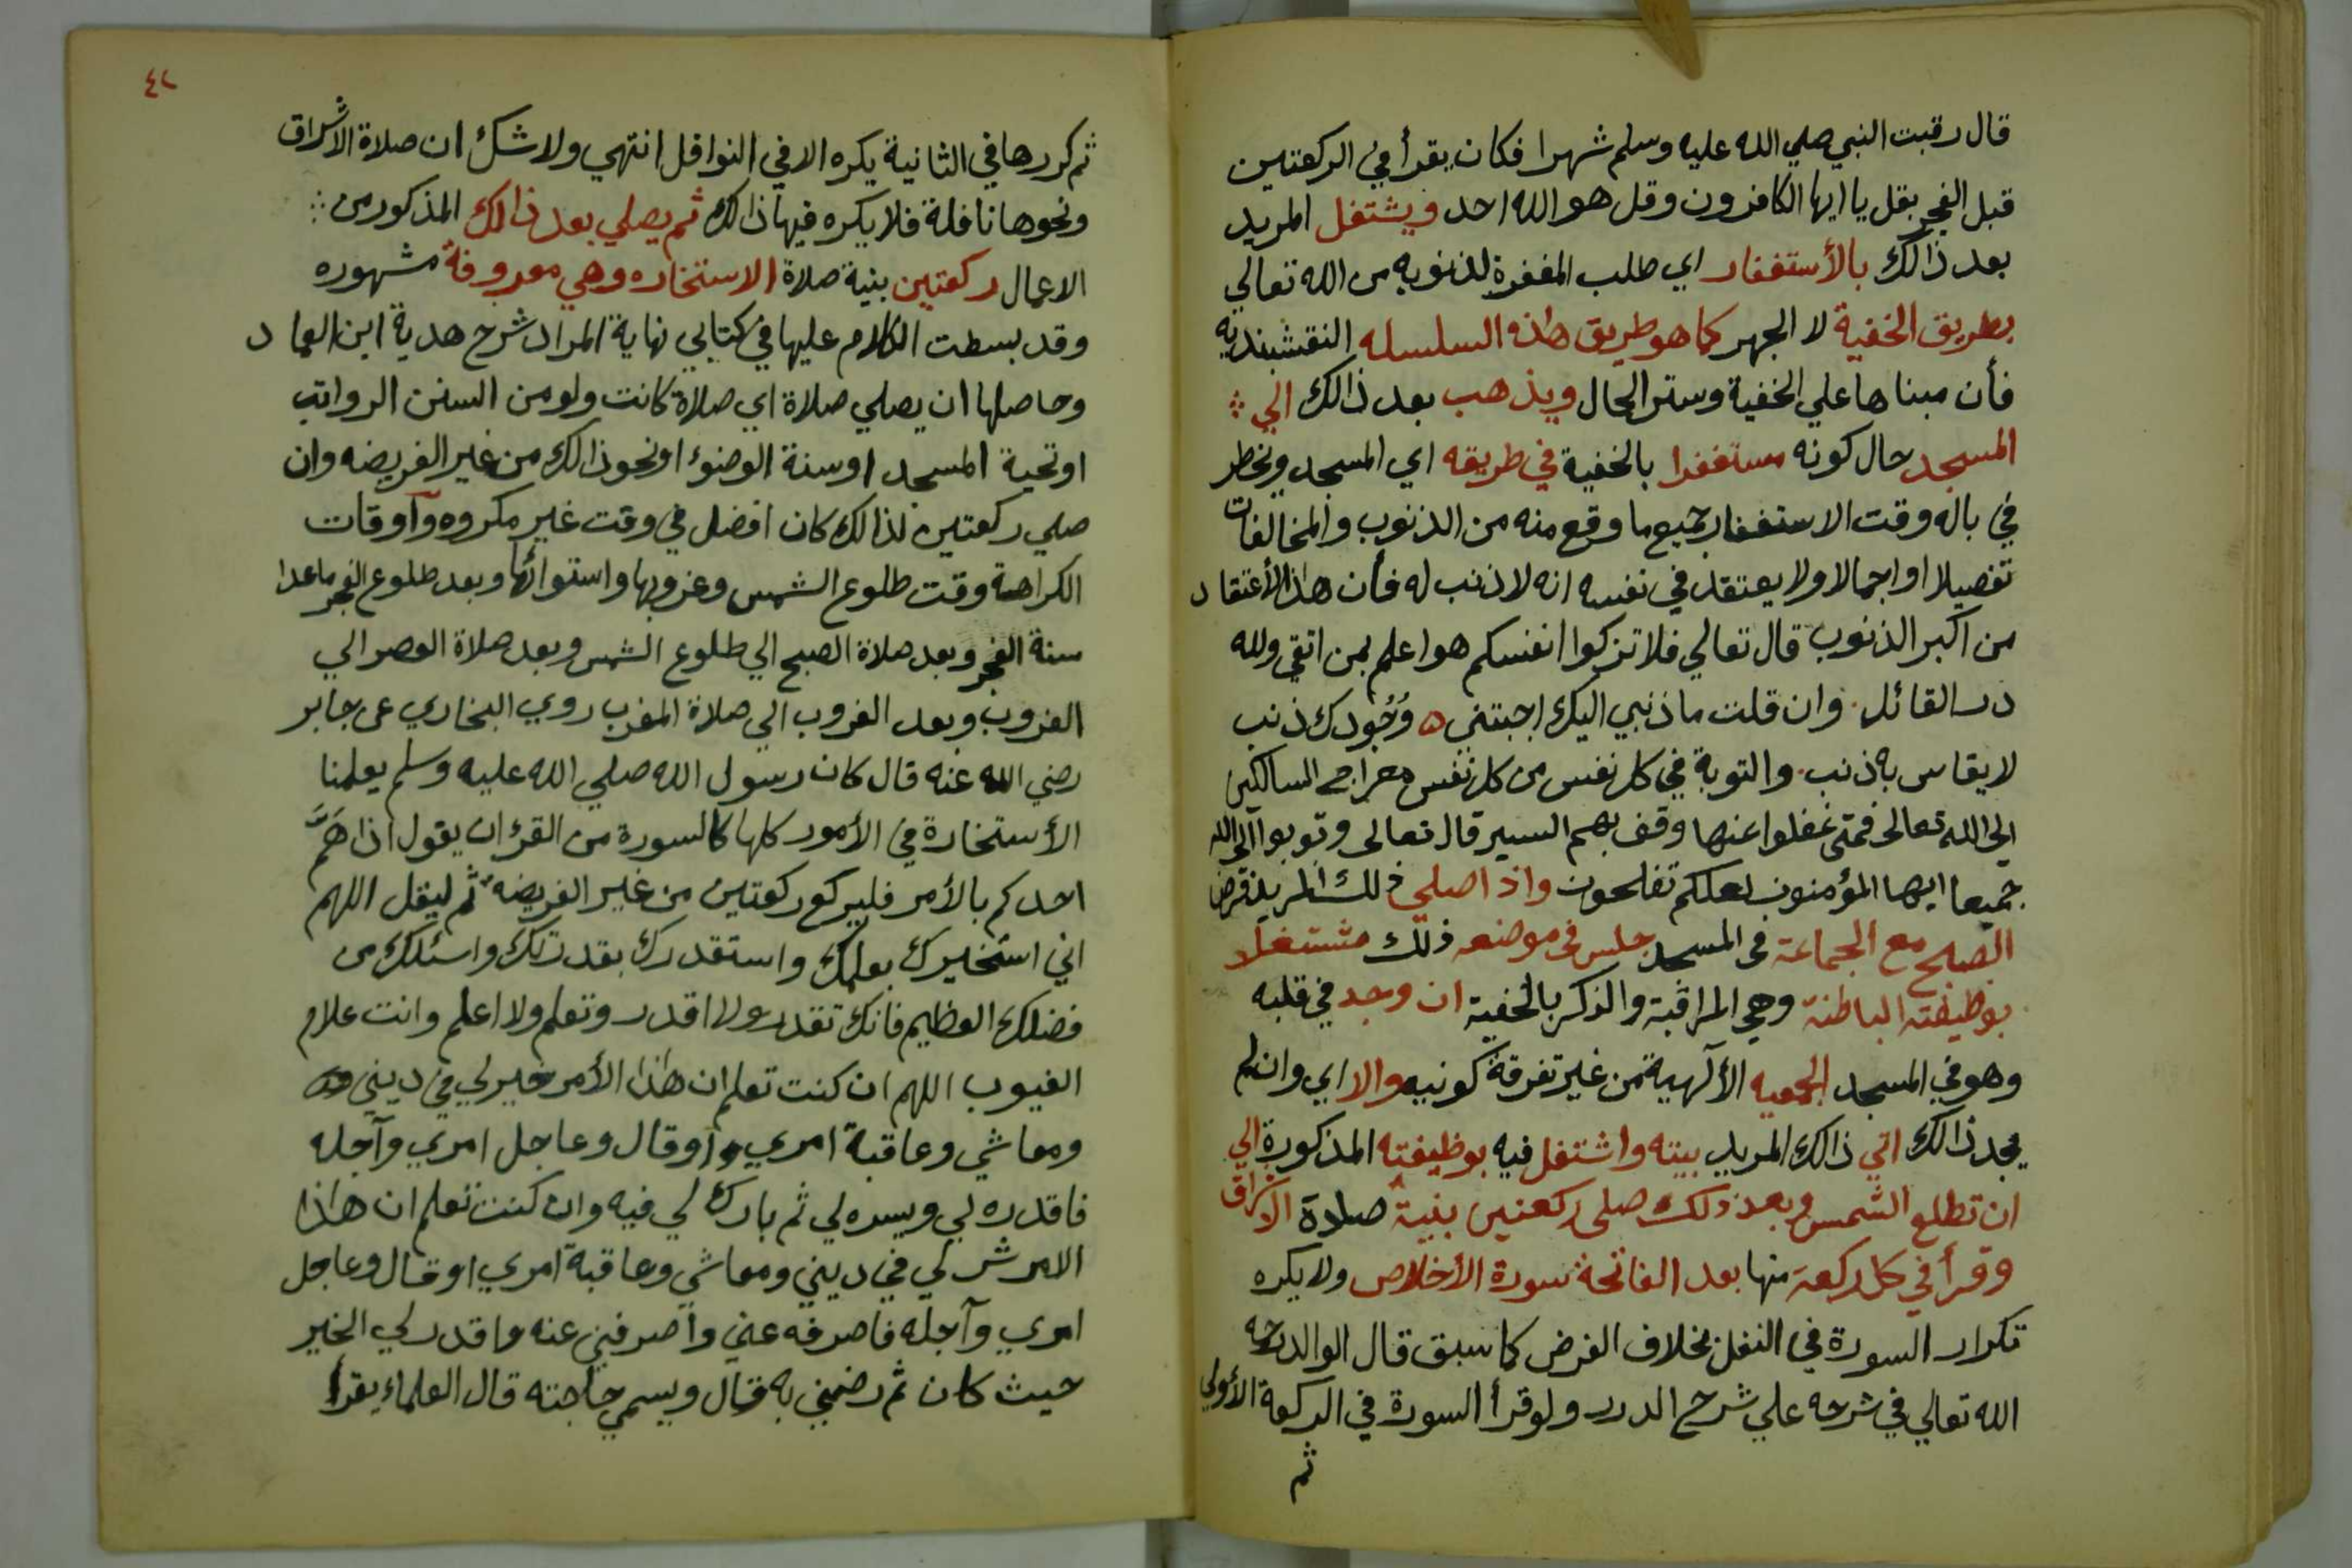 قال رقبت النبي صلي الله عليه وسلم شهرا فكان يقرأ في الركعتين
قبل الفجر بقل يا ايها الكافرون وقل هو الله احد ويشتغل المريد
بعد ذالك بالأستغفار اي طلب المغفرة لذنوبه من الله تعالي
بطريق الخفية لا الجهر كما هو طريق هذه السلسله النقشبنديه
فأن مبناها علي الخفية وستر الحال ويذهب بعد ذالك الي
المسجد حال كونه مستغفرا بالخفية في طريقه اي المسجد ويخطر
في باله وقت الاستغفار جميع ما وقع منه من الذنوب والمخالفات
تفصيلا او اجمالا ولا يعتقد في نفسه انه لا ذنب له فأن هذا الأعتقاد
من اكبر الذنوب قال تعالي فلا تزكوا انفسكم هو اعلم بمن اتقي ولله
در القائل وان قلت ما ذنبي اليك اجبتني ه وُجُودك ذنب
لا يقاس به ذنب والتوبة في كل نفس من كل نفس معراج السالكين
الى الله تعالى فمتى غفلوا عنها وقف بهم السير قال تعالى وتوبوا الى الله
جميعا ايها المؤمنون لعلكم تفلحون واذا صلى ذلك المريد فرض
الصبح مع الجماعة فى المسجد جلس فى موضعه ذلك مشتغلا
بوظيفته الباطنة وهي المراقبة والذكر بالخفية ان وجد في قلبه
وهو في المسجد الجمعيه الألهية من غير تفرقة كونيه والا اي وان لم
يجد ذالك اتي ذالك المريد بيته واشتغل فيه بوظيفته المذكورة الي
ان تطلع الشمس وبعد ذلك صلى ركعتين بنية صلاة الاشراق
وقرأ في كل ركعة منها بعد الفاتحة سورة الأخلاص ولا يكره
تكرار السورة في النفل بخلاف الفرض كما سبق قال الوالد رحمه
الله تعالي في شرحه علي شرح الدرر ولو قرأ السورة في الركعة الأولي
ثم
٤٢
ثم كررها في الثانية يكره الا في النوافل انتهي ولا شك ان صلاة الاشراق
ونحوها نافلة فلا يكره فيها ذالك ثم يصلي بعد ذالك المذكور من
الاعمال ركعتين بنية صلاة الاستخاره وهي معروفة مشهوره
وقد بسطت الكلام عليها في كتابي نهاية المراد شرح هدية ابن العماد
وحاصلها ان يصلي صلاة اي صلاة كانت ولو من السنن الرواتب
او تحية المسجد او سنة الوضوء او نحو ذالك من غير الفريضه وان
صلي ركعتين لذالك كان افضل في وقت غير مكروه وأوقات
الكراهة وقت طلوع الشمس وغروبها واستوائها وبعد طلوع الفجر ماعدا
سنة الفجر وبعد صلاة الصبح الي طلوع الشمس وبعد صلاة العصر الي
الغروب وبعد الغروب الي صلاة المغرب روي البخاري عن جابر
رضي الله عنه قال كان رسول الله صلي الله عليه وسلم يعلمنا
الأستخارة في الأمور كلها كالسورة من القرءان يقول اذا هَمَّ
احدكم بالأمر فليركع ركعتين من غير الفريضه ثم ليقل اللهم
اني استخيرك بعلمك واستقدرك بقدرتك واسئلك من
فضلك العظيم فانك تقدر ولا اقدر وتعلم ولا اعلم وانت علام
الغيوب اللهم ان كنت تعلم ان هاذا الأمر خير لي في ديني
ومعاشي وعاقبة امري أو قال وعاجل امري وآجله
فاقدره لي ويسره لي ثم بارك لي فيه وان كنت تعلم ان هاذا
الامر شر لي في ديني ومعاشي وعاقبة امري او قال وعاجل
امري وآجله فاصرفه عني واصرفني عنه واقدر لي الخير
حيث كان ثم رضني به قال ويسمي حاجته قال العلماء يقرأ